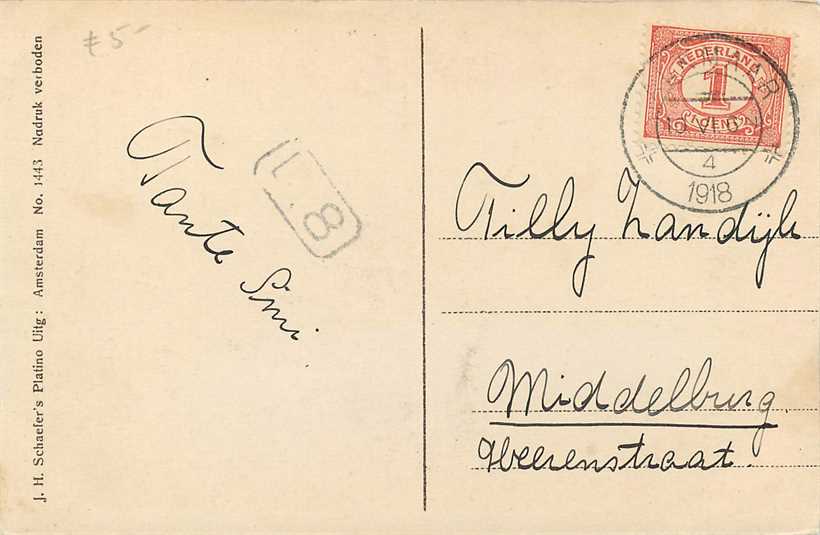 J. H. Schaefer's Platino Uitg: Amsterdam No. 1443 Nadruk verboden
£5-
Tante Sini
L. 8
NEDERLAND
1
CENT
4
1918
Tilly Zandijk
Middelburg.
Heerenstraat.